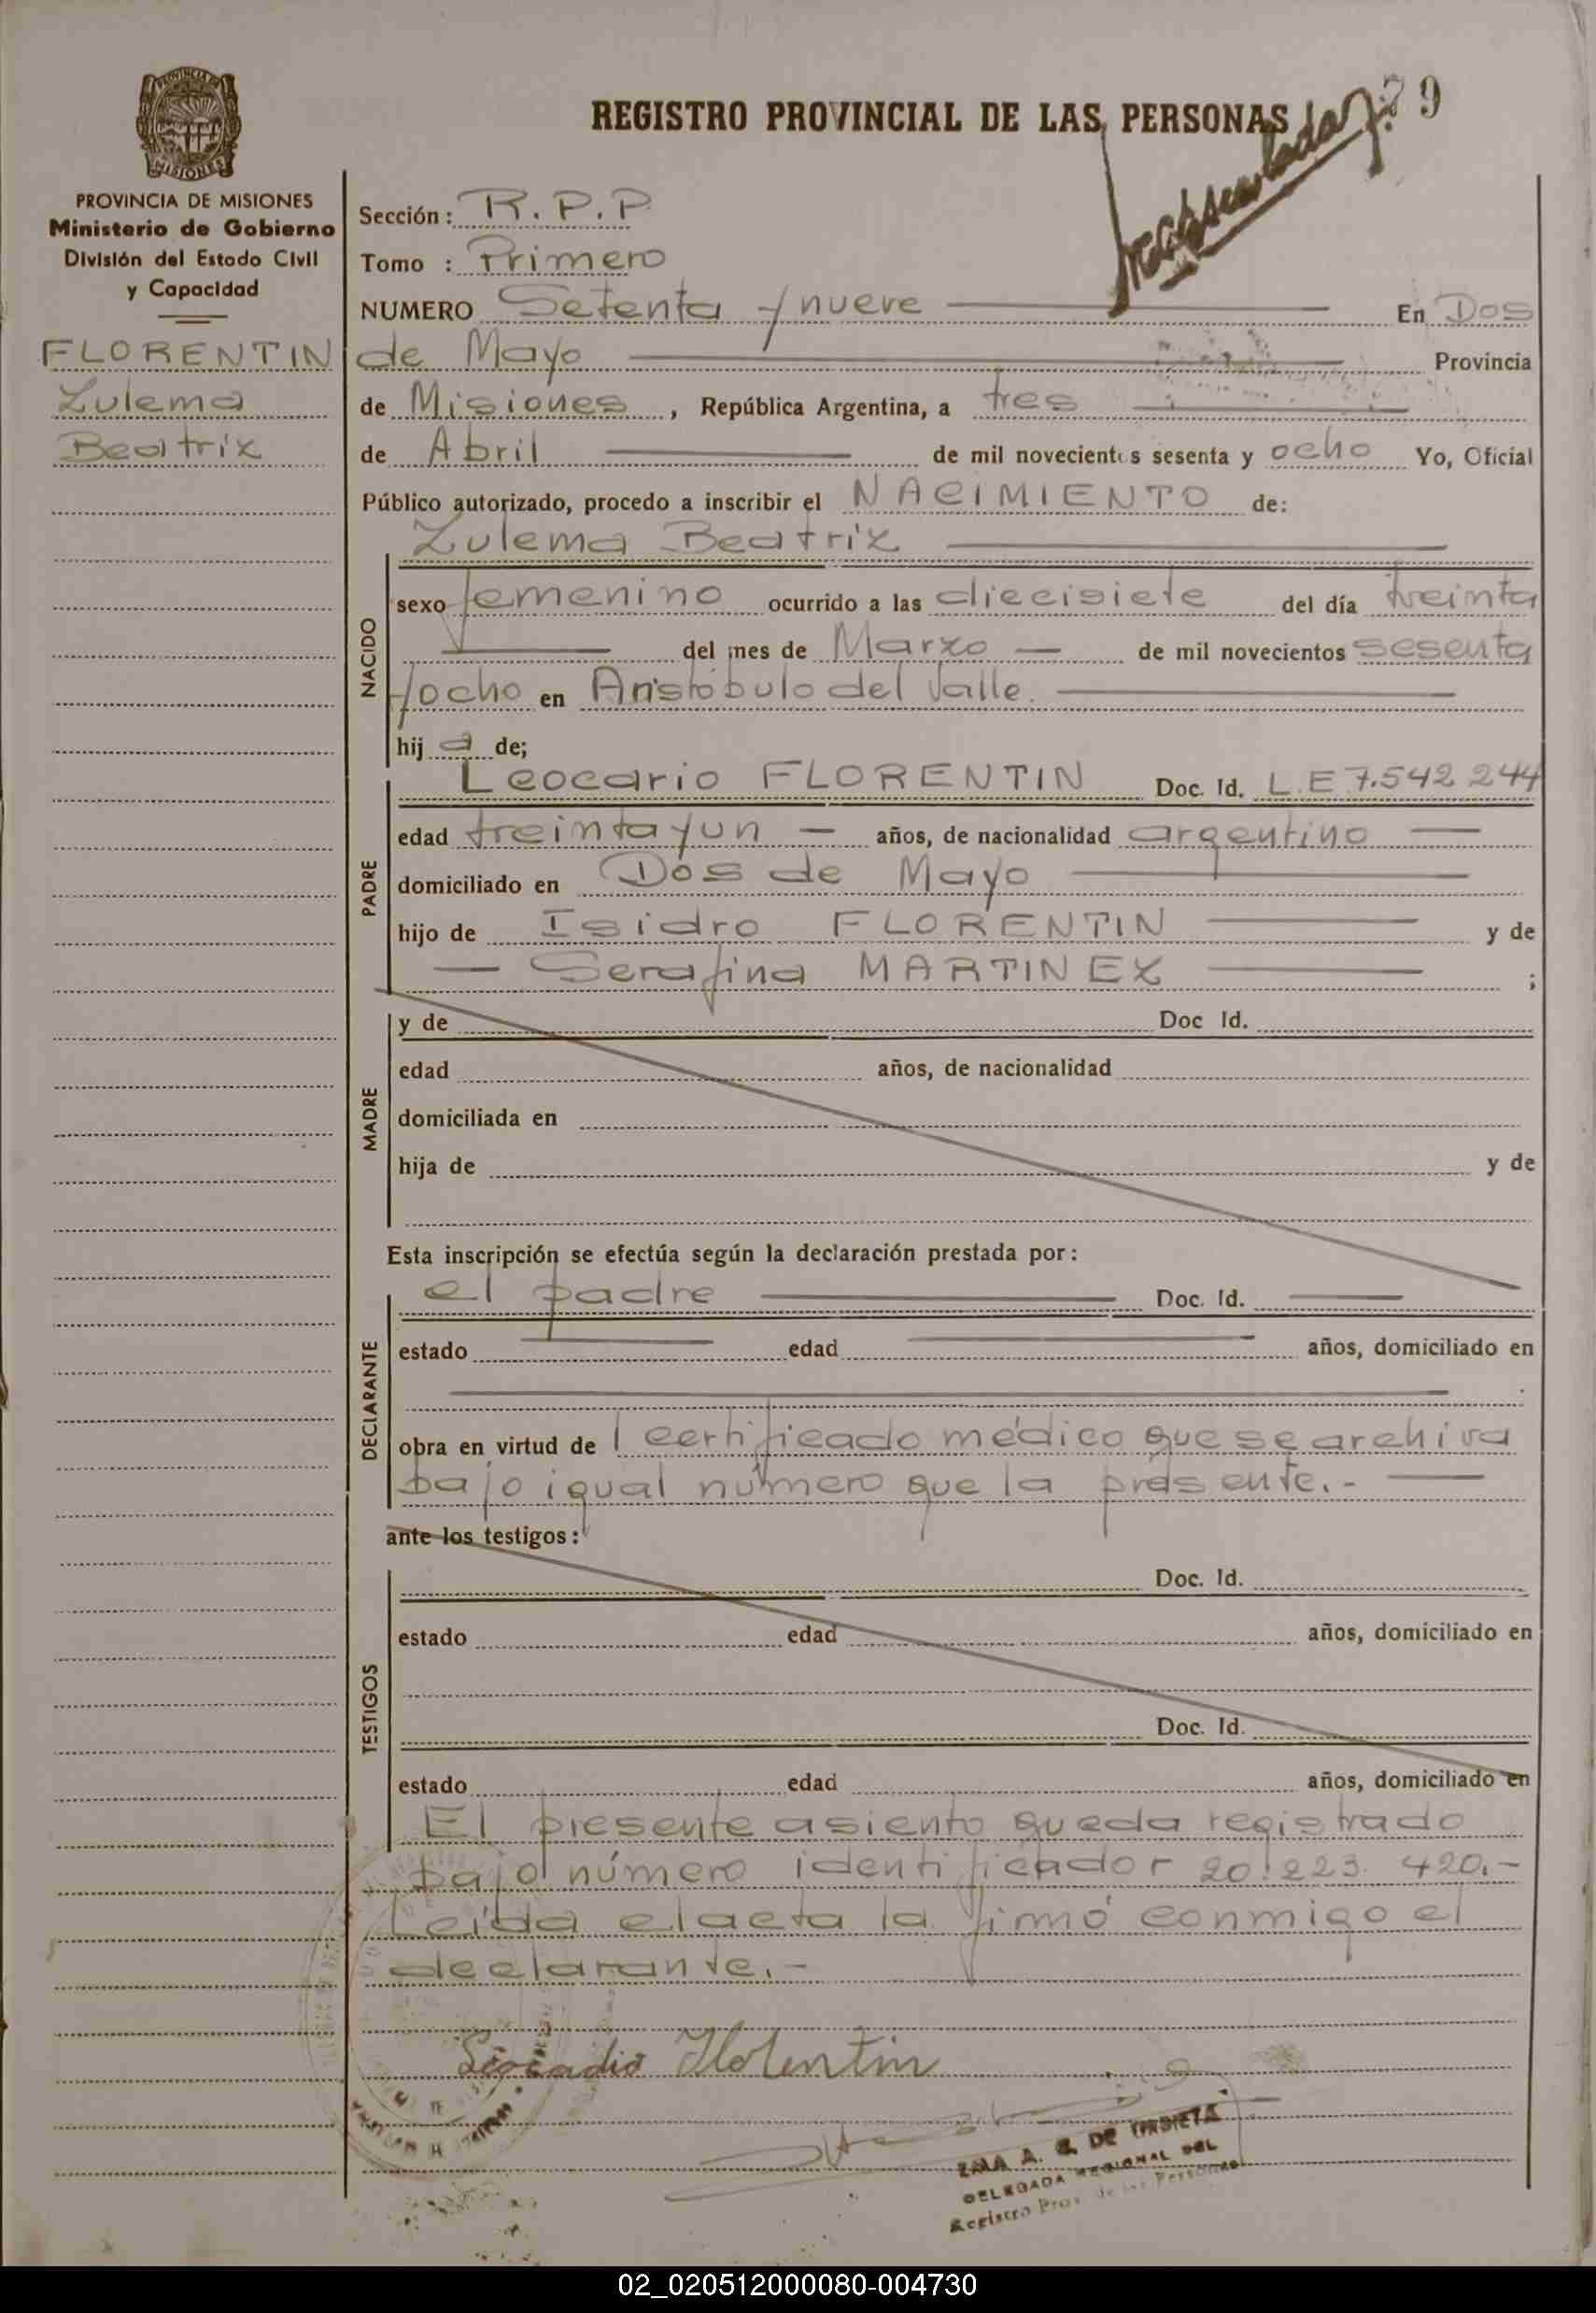 79
REGISTRO PROVINCIAL DE LAS PERSONAS
PROVINCIA DE MISIONES
Ministerio de Gobierno
División del Estado Civil
y Capacidad
FLORENTIN
Zulema
Beatriz
Sección: R.P.P
Tomo : Primero
NUMERO Setenta y nueve En Dos
de Mayo Provincia
de Misiones, República Argentina, a tres
de Abril de mil novecientos sesenta y ocho Yo, Oficial
Público autorizado, procedo a inscribir el NACIMIENTO de:
Zulema Beatriz
NACIDO
sexo femenino ocurrido a las diecisiete del día treinta
del mes de Marzo de mil novecientos sesenta
y ocho en Aristóbulo del Valle.
hija de;
PADRE
Leocario FLORENTIN Doc. Id. L.E 7.542 244
edad treinta y un años, de nacionalidad argentino
domiciliado en Dos de Mayo
hijo de Isidro FLORENTIN y de
Serafina MARTINEZ ;
MADRE
y de Doc Id.
edad años, de nacionalidad
domiciliada en
hija de y de
Esta inscripción se efectúa según la declaración prestada por:
DECLARANTE
el padre Doc. Id.
estado edad años, domiciliado en
obra en virtud de l certificado médico que se archiva
bajo igual número que la presente.-
ante los testigos:
TESTIGOS
Doc. Id.
estado edad años, domiciliado en
Doc. Id.
estado edad años, domiciliado en
El presente asiento queda registrado
bajo número identificador 20.223.420.-
Leída el acta la firmó conmigo el
declarante.-
Leocadio Florentin
A. DE
DELEGADA REGIONAL DEL
Registro Prov. de las Personas
02_020512000080-004730